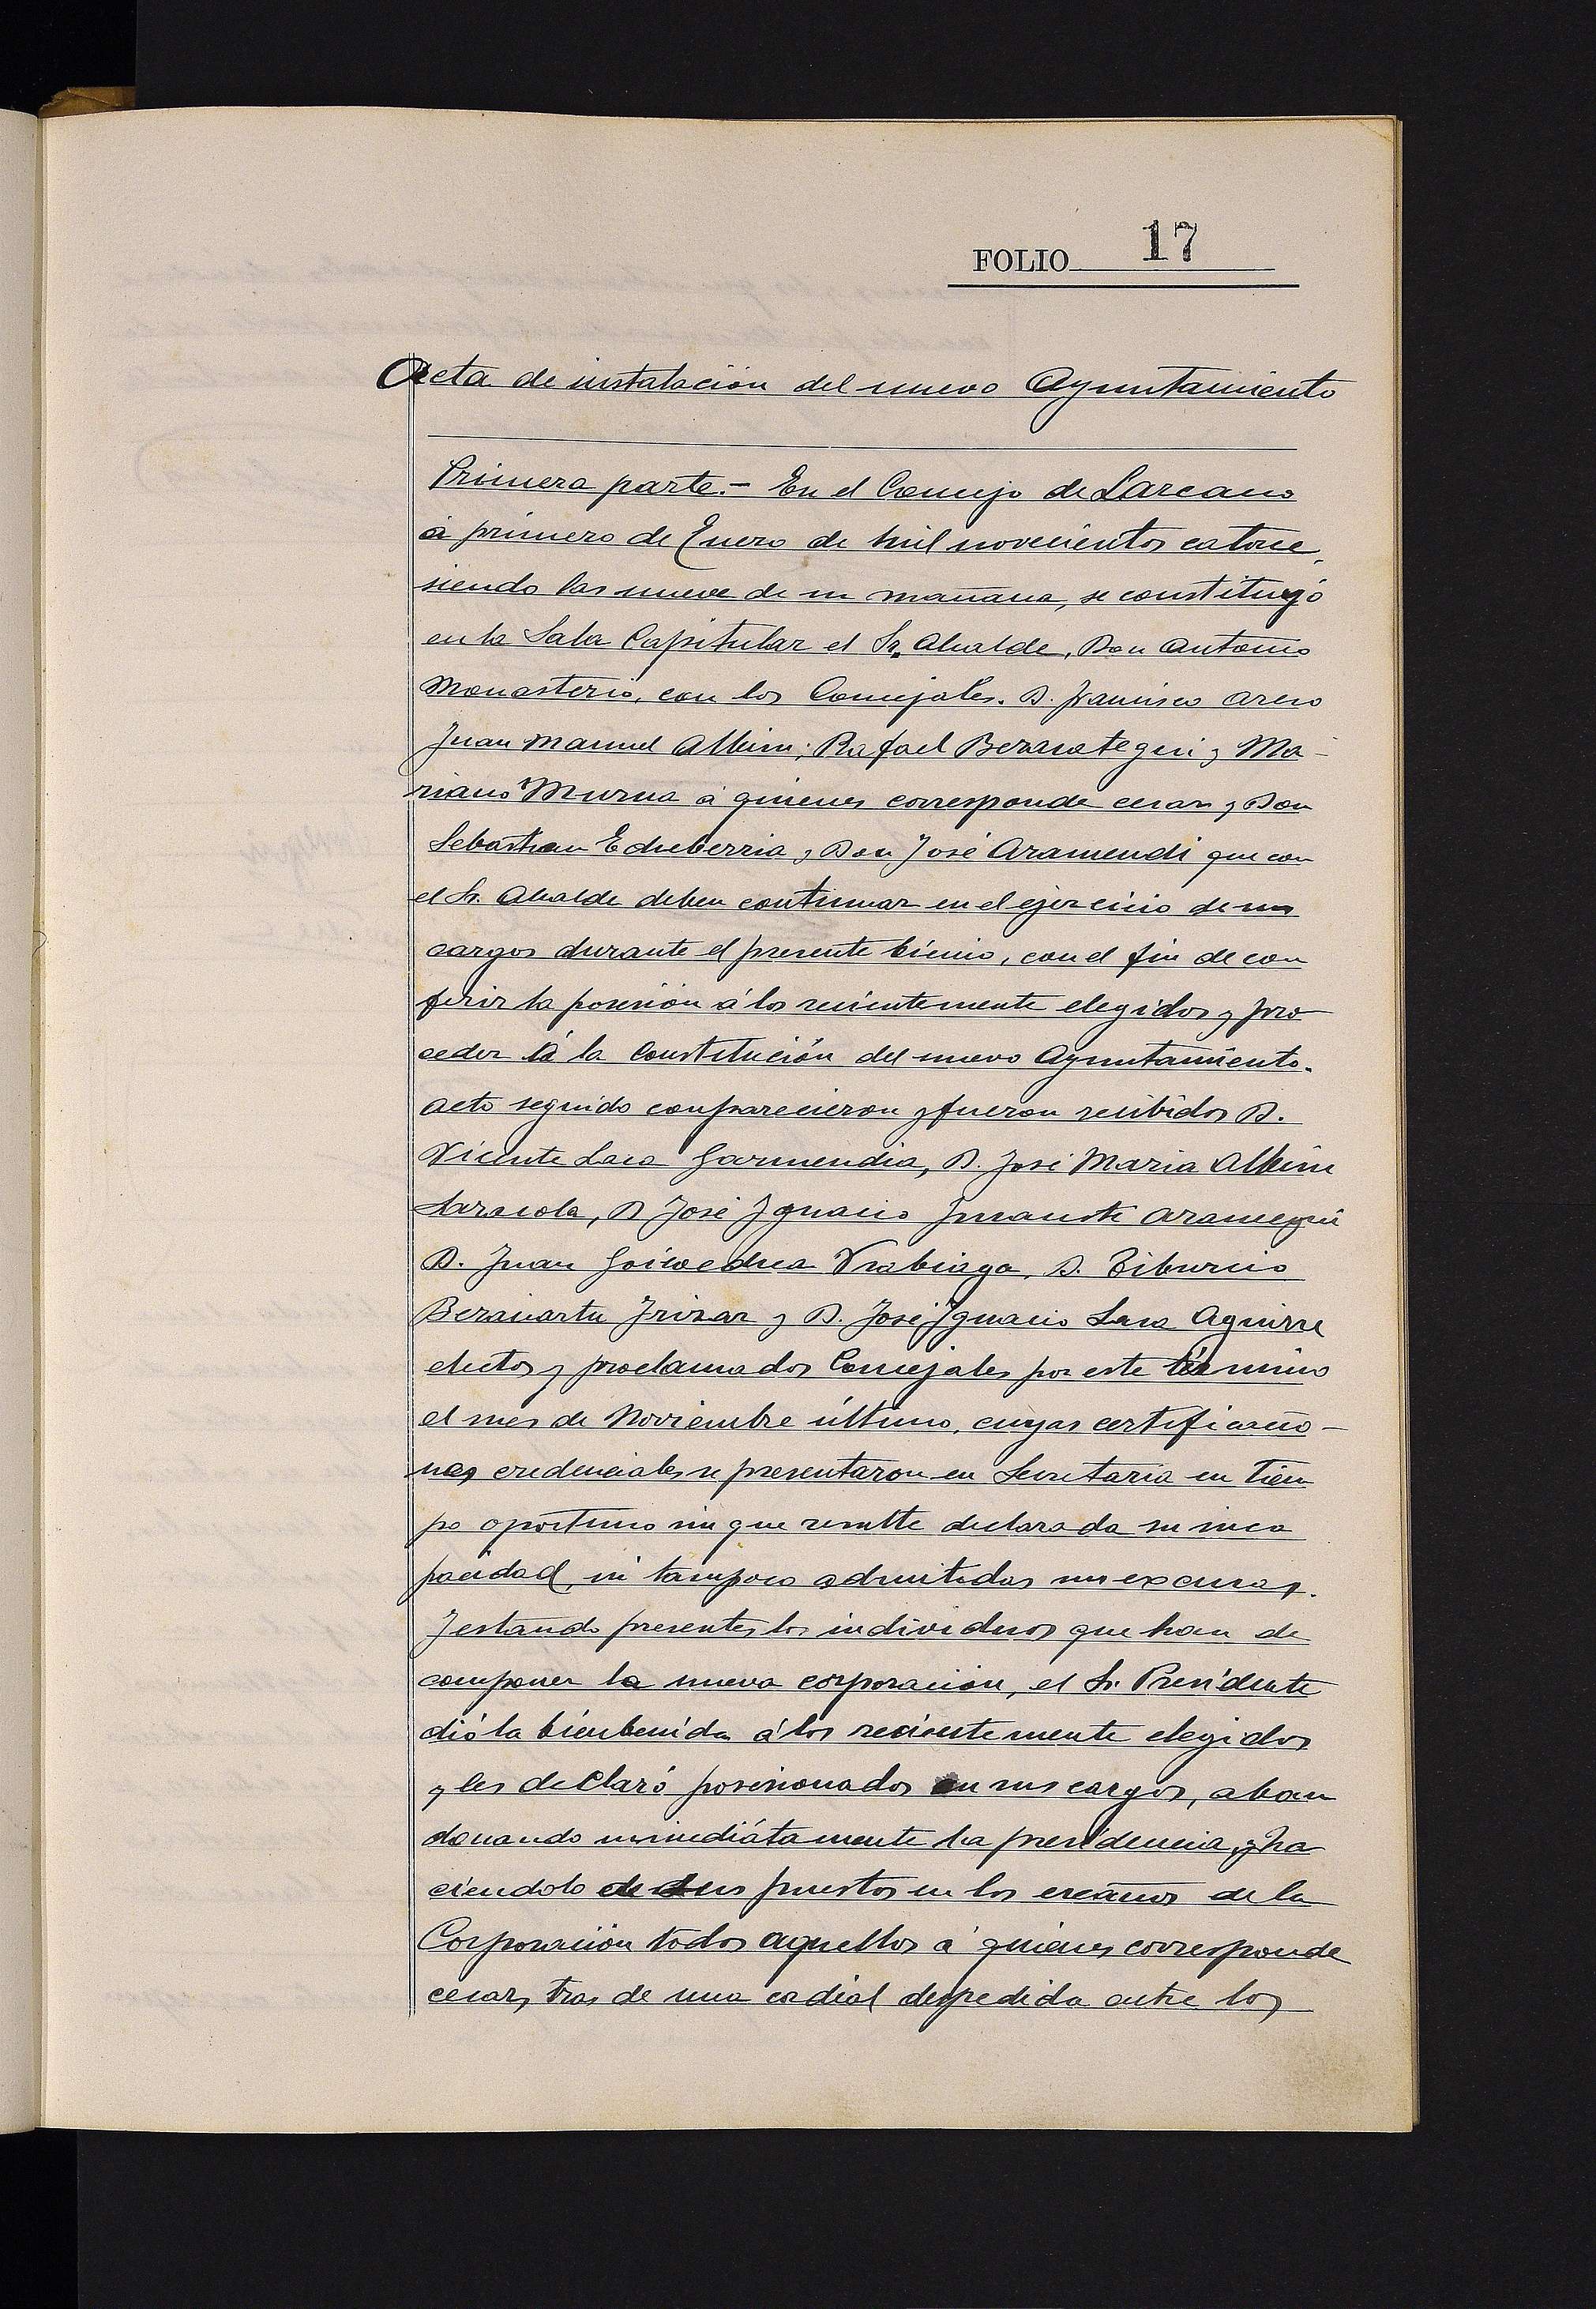 FOLIO 17
Acta de instalación del nuevo Ayuntamiento
Primera parte.- En el Concejo de Lazcano
á primero de Enero de mil novecientos catorce,
siendo las nueve de su mañana, se constituyó
en la Sala Capitular el Sr. Alcalde, Don Antonio
Monasterio, con los Concejales. D. Francisco
Juan Manuel Albisu; Rafael Berasategui y Ma-
riano Murua á quienes corresponde cesar y Don
Sebastian Echeberria y Don José Aramendi que con
el Sr. Alcalde deben continuar en el ejercicio de sus
cargos durante el presente bienio, con el fin de con
ferir la posesión á los recientemente elegidos y pro
ceder á la Constitución del nuevo Ayuntamiento.
Acto seguido comparecieron y fueron recibidos D.
Vicente Lasa Garmendia, D. José Maria Albisu
D José Ignacio
D. Juan Goicoechea D. Tiburcio
Irizar y D. José Ignacio Lasa Aguirre
electos y proclamados Concejales por este término
el mes de Noviembre último, cuyas certificacio-
nes credenciales se presentaron en Secretaría en tiem
po oportuno sin que resulte declarada su inca
pacidad, ni tampoco admitidas sus excusas.
Y estando presentes los individuos que han de
componer la nueva corporación, el Sr. Presidente
dió la bienbenida á los recientemente elegidos
y les declaró posesionados en sus cargos, aban
donando inmediátamente la presidencia y ha
ciendolo de sus puestos en los escaños de la
Corporación todos aquellos á quienes corresponde
cesar, tras de una cordial despedida entre los